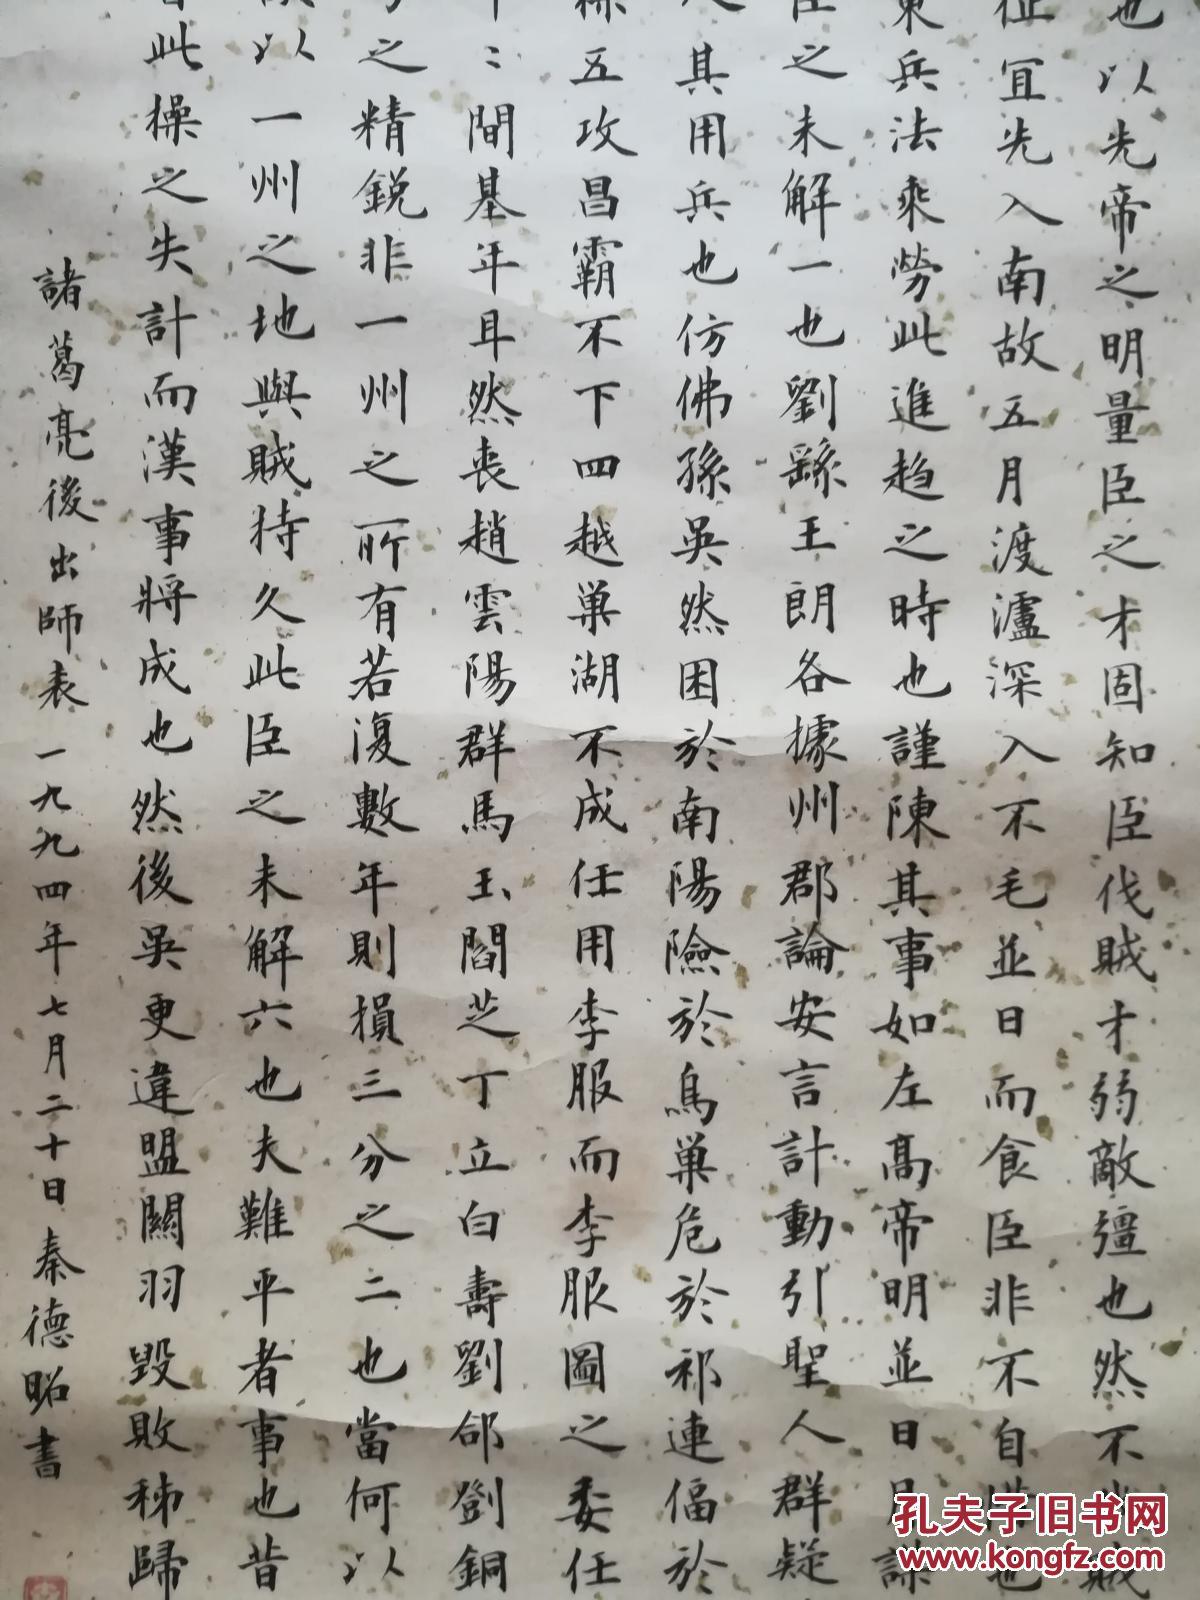 也以先帝之明量臣之才固知臣伐賊才弱敵彊也然不
征宜先入南故五月渡瀘深入不毛並日而食臣非不自惜也
東兵法乘勞此進趋之時也謹陳其事如左高帝明並日月謀
臣之未解一也劉繇王朗各據州郡論安言計動引聖人群疑
其用兵也仿佛孫吳然困於南陽險於烏巢危於祁連偪於
五攻昌霸不下四越巢湖不成任用李服而李服圖之委任
〻間基年耳然丧趙雲陽群馬玉閻芝丁立白壽劉郃鄧銅
之精銳非一州之所有若復數年則損三分之二也當何以
以一州之地與賊持久此臣之未解六也夫難平者事也昔
此操之失計而漢事將成也然後吳更違盟關羽毀敗秭歸
諸葛亮後出師表 一九九四年七月二十日秦德昭書
孔夫子旧书网
www.kongfz.com